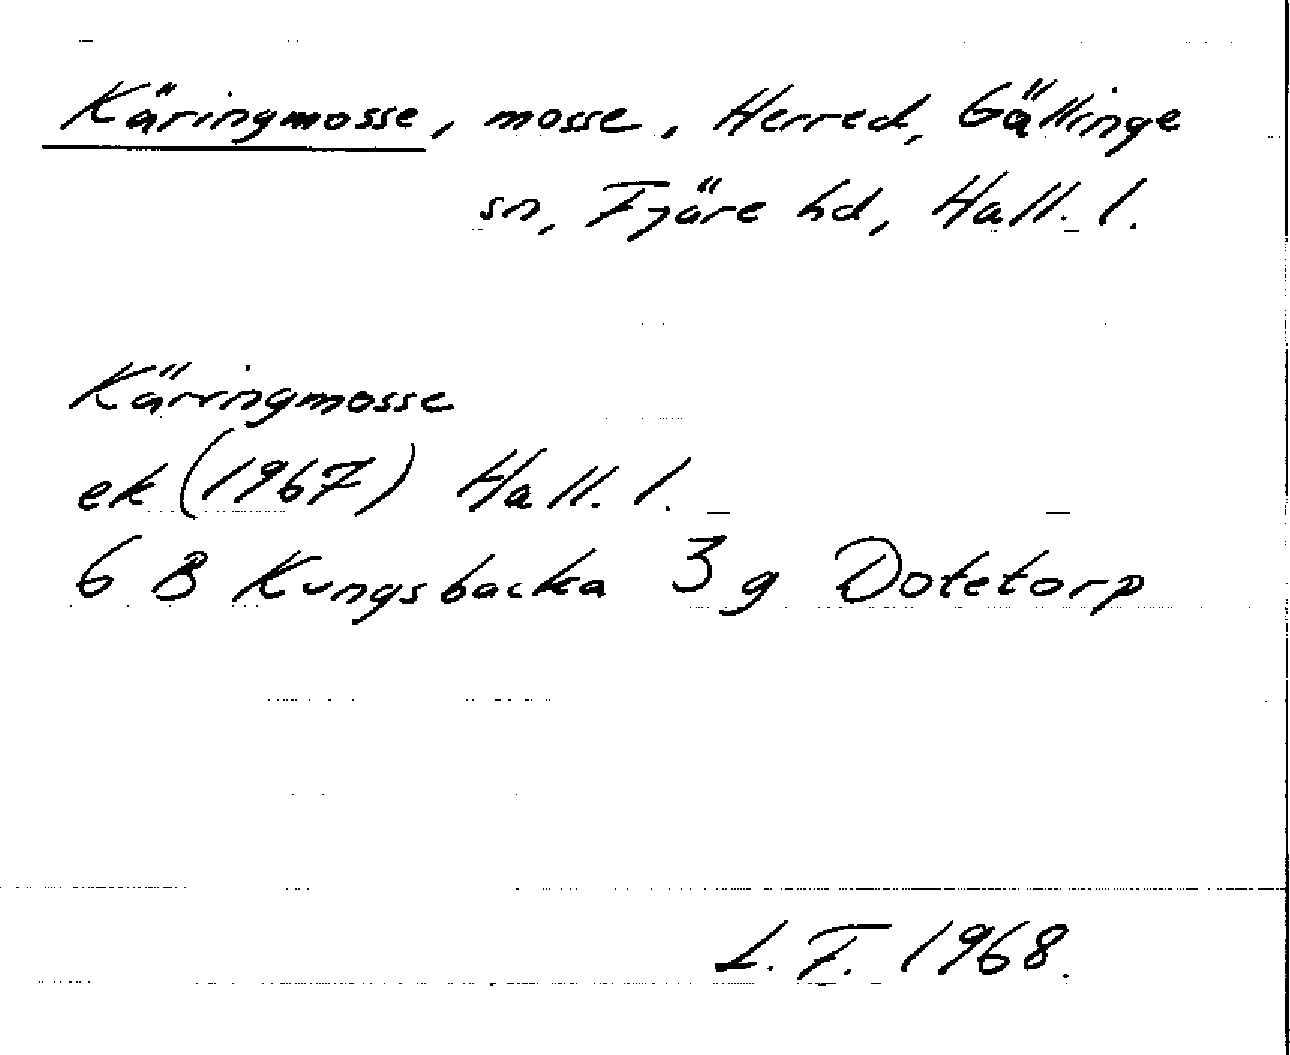 Käringmosse, mosse, Herred, Gällinge
sn, Fjäre hd, Hall. l.
Käringmosse
ek (1967) Hall. l.
6 B Kungsbacka 3 g Dotetorp
L. F. 1968.